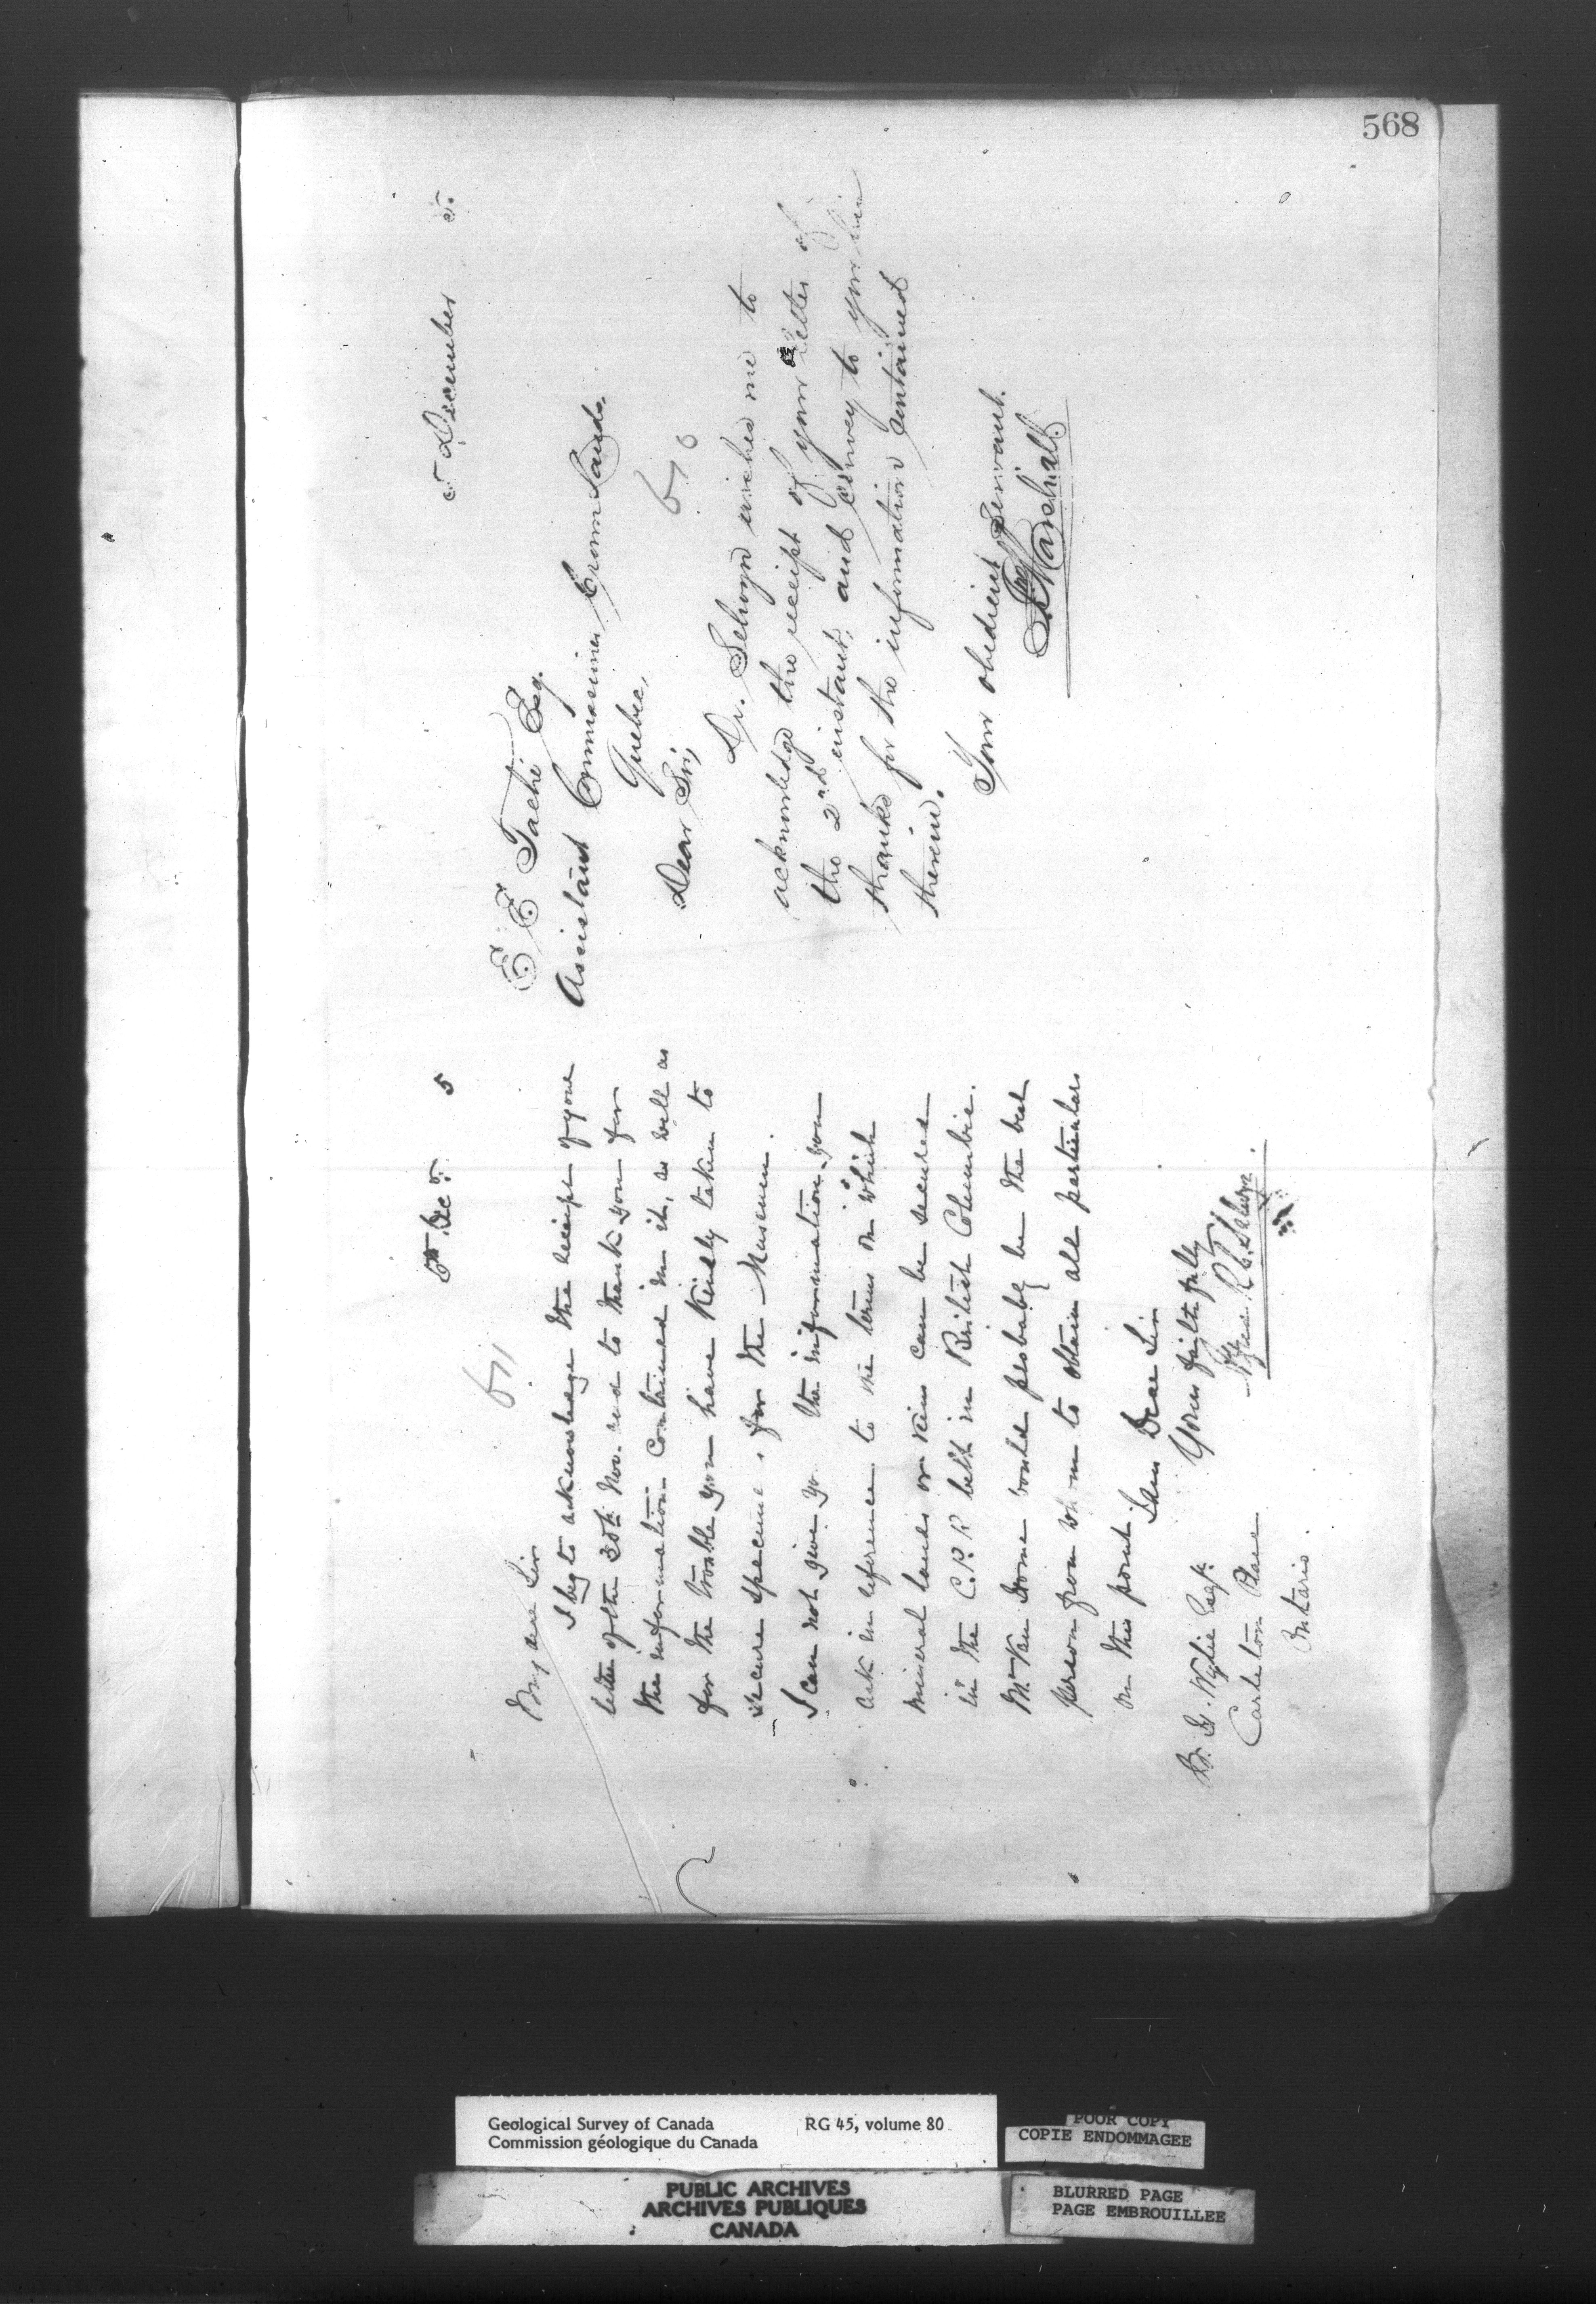 568
5th Dec. 5
611
My dear Sir
I beg to acknowledge the receipt of your
letter of the 30th Nov. and to thank you for
the information contained in it, as well as
for the trouble you have kindly taken to
secure specimens for the Museum.
I can not give you the information you
ask in reference to the terms on which
mineral lands or veins can be secured
in the C.P.R belt in British Columbia.
Mr Van Horne would probably be the best
person from whom to obtain all particulars
on this point. I am Dear Sir
Yours faithfully
Alfred R. C. Selwyn.
Wylie Esqr.
Carleton Place
Ontario.
5 December 5.
E E Taché Esq.
Assistant Commissioner Crown Lands.
Quebec,
610
Dear Sir,
Dr. Selwyn wishes me to
acknowledge the receipt of your letter of
the 2nd instant, and convey to you his
thanks for the information contained
therein.
Your obedient Servant.
Marshall
Geological Survey of Canada RG 45, volume 80
Commission géologique du Canada
POOR COPY
COPIE ENDOMMAGEE
PUBLIC ARCHIVES
ARCHIVES PUBLIQUES
CANADA
BLURRED PAGE
PAGE EMBROUILLEE